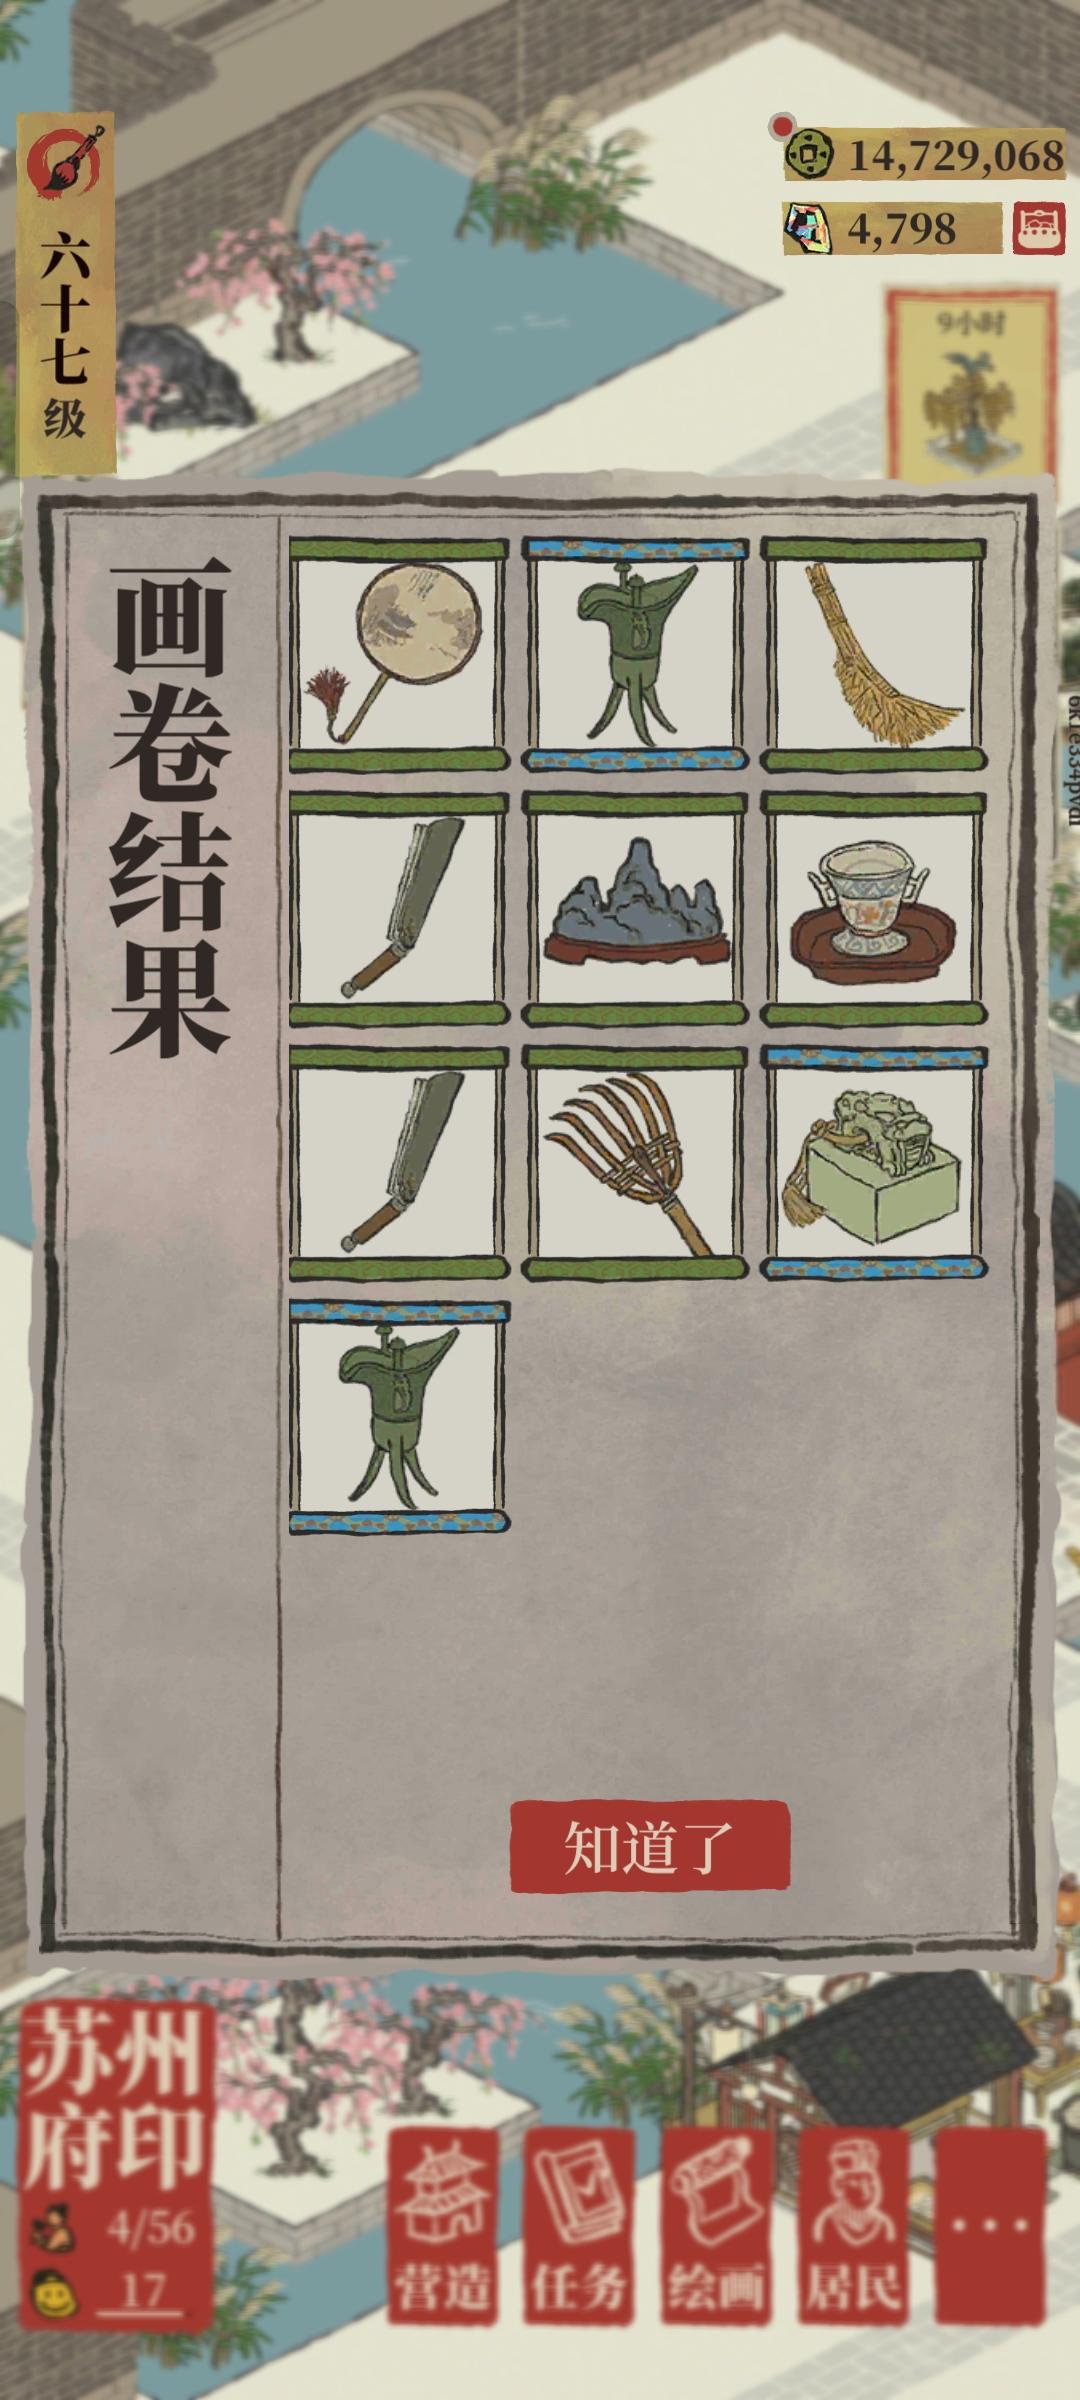 六十七级
14,729,068
4,798
9小时
画卷结果
知道了
苏州
府印
4/56
17
营造
任务
绘画
居民
...